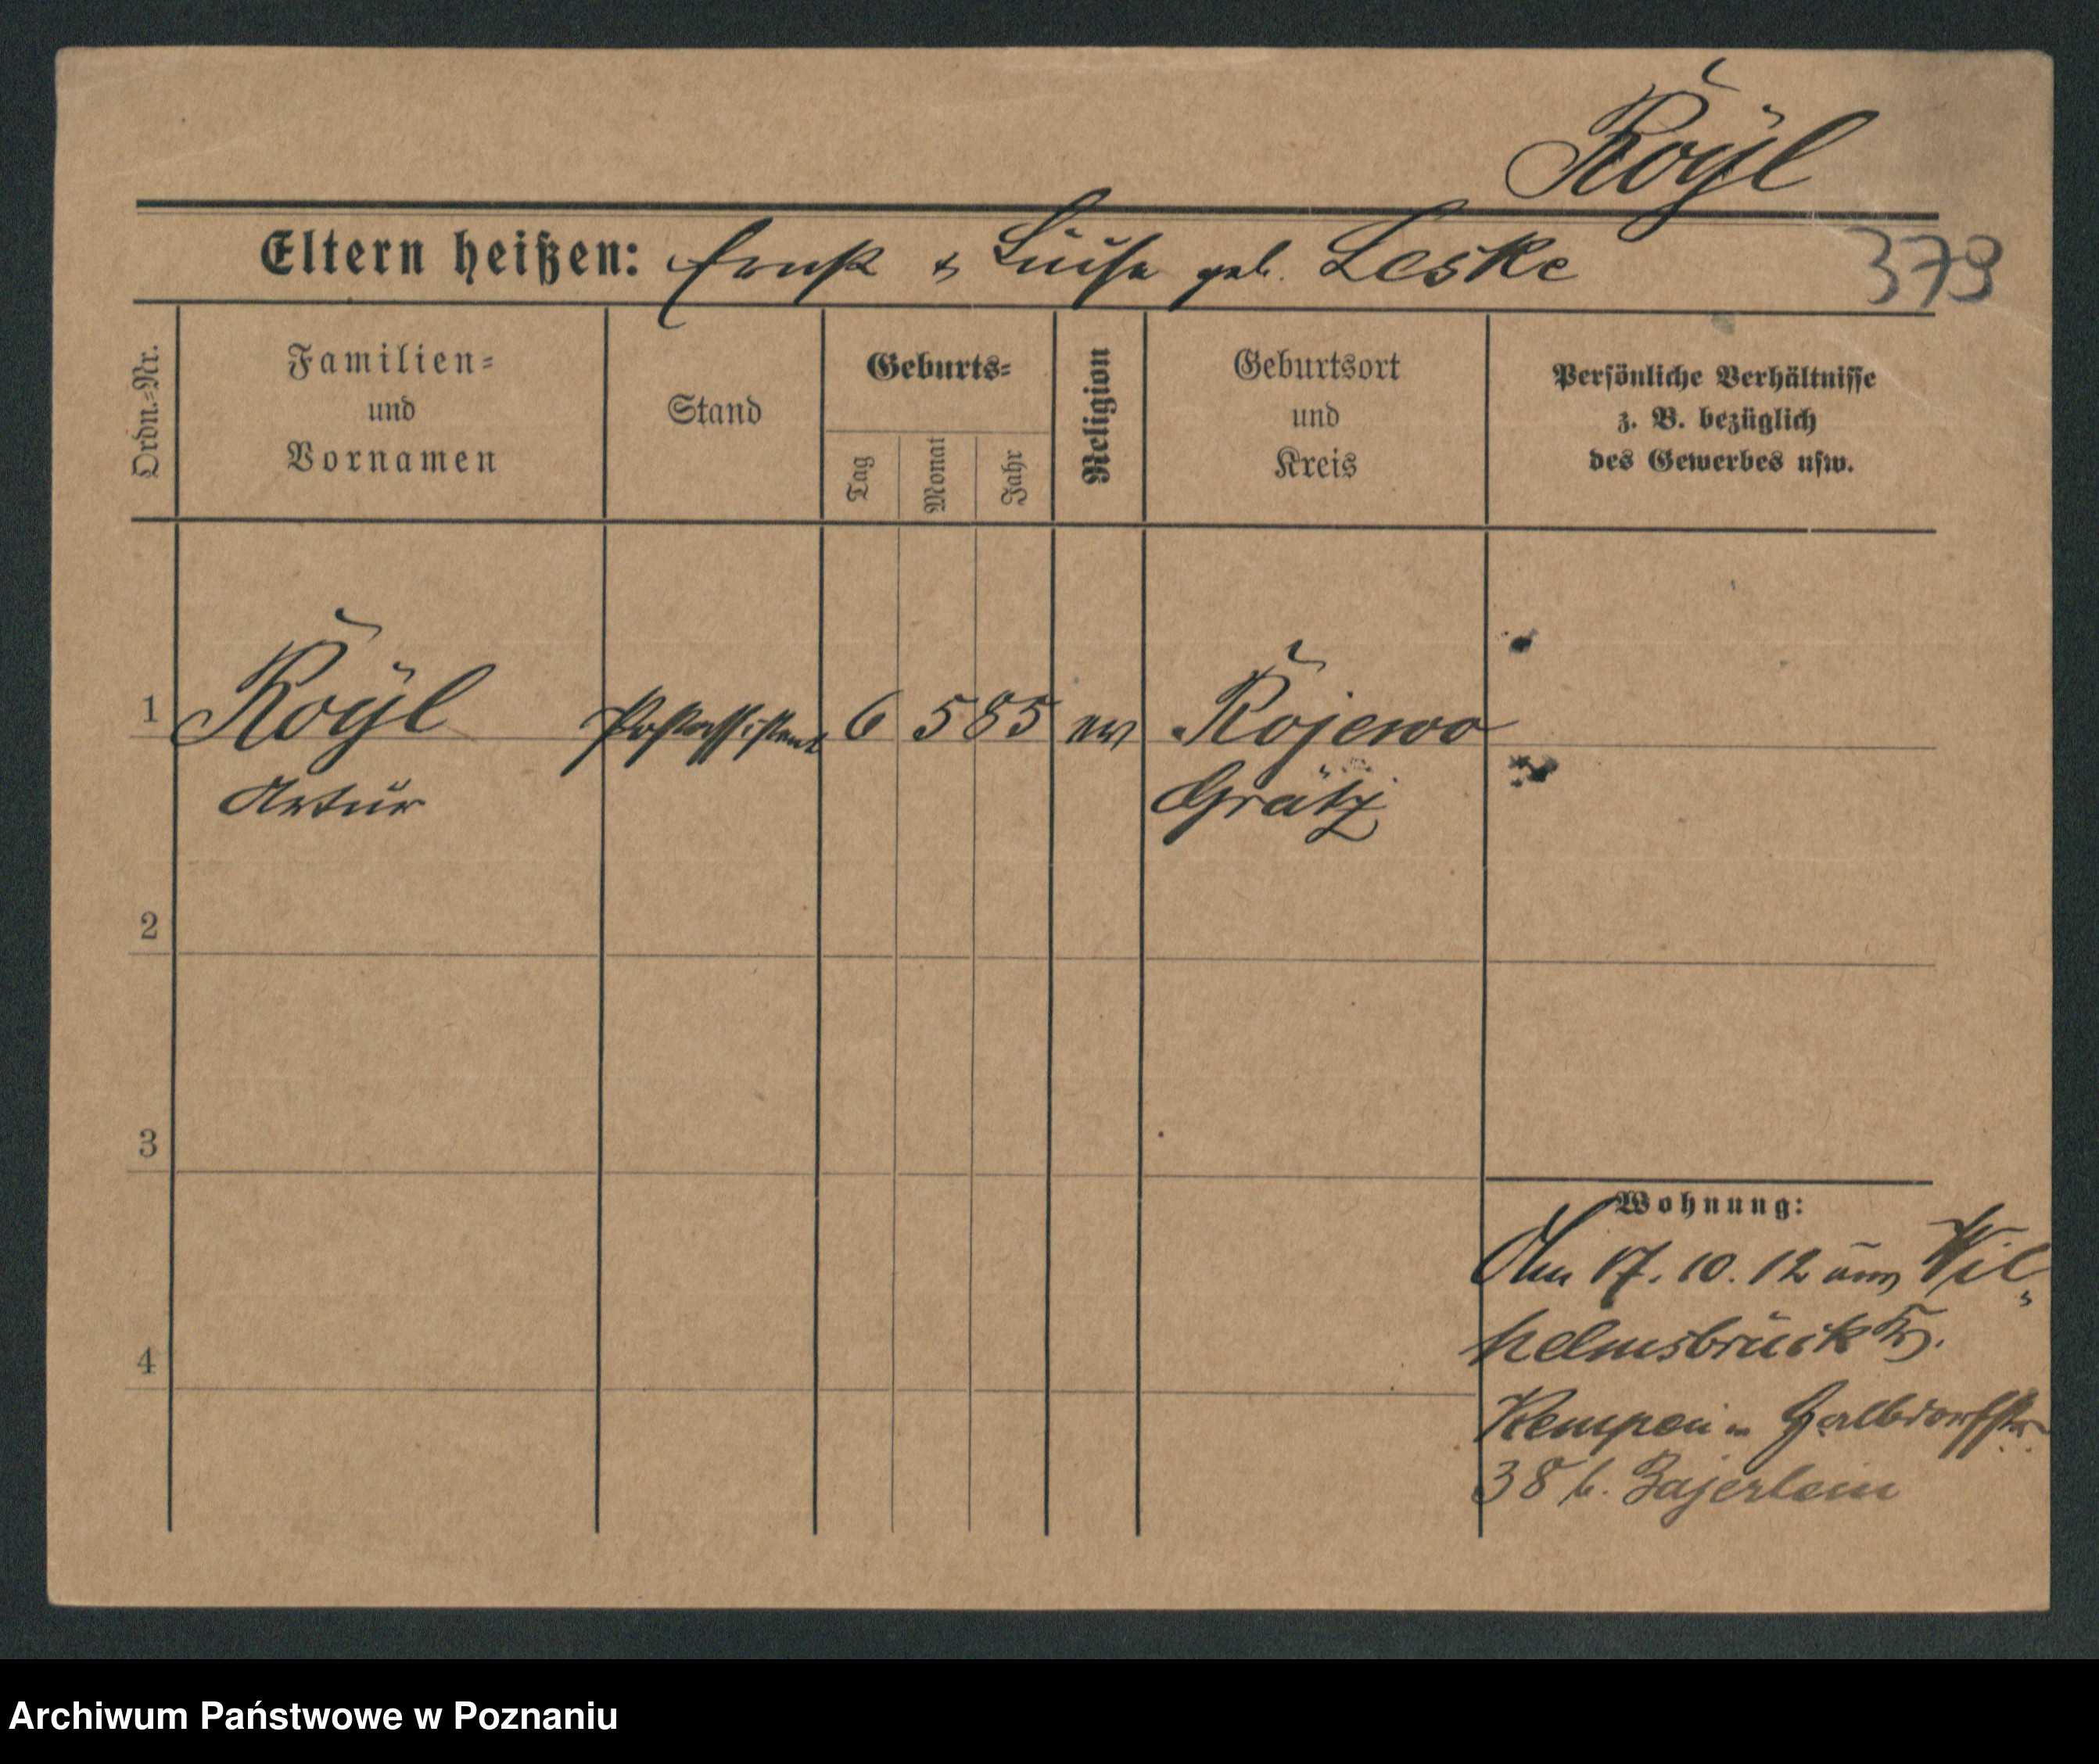 Röÿl
Eltern heißen: Ernst & Luise geb. Leske
379
Ordn.-Nr.
Familien-
und
Vornamen
Stand
Geburts-
Tag
Monat
Jahr
Religion
Geburtsort
und
Kreis
Persönliche Verhältnisse
z. B. bezüglich
des Gewerbes usw.
1 Röÿl Postassistent 6 5 85 ev Rojewo
Artur Grätz
2
3
4
Wohnung:
17. 10. 12 Wil
helmsbrück Kr.
Kempen
38 b. Bajerlein
Archiwum Państwowe w Poznaniu